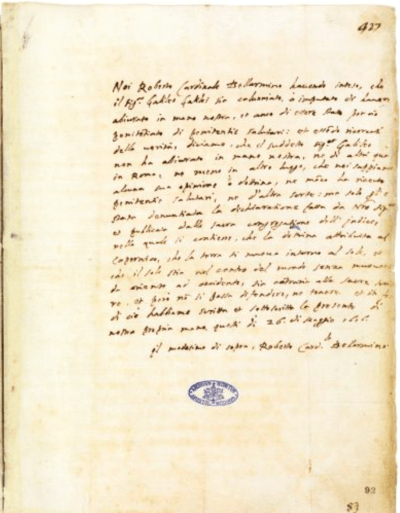 427
Noi Roberto Cardinale Bellarmino havendo inteso, che
il Sigr. Galileo Galilei sia calunniato, o imputato di havere
abiurato in mano nostra, et anco di essere stato per ciò
penitentiato di penitentie salutari: et essendo ricercati
della verità, diciamo, che il suddetto Sigr. Galileo
non ha abiurato in mano nostra, né di altri qua
in Roma, né meno in altro luogo, che noi sappiamo
alcuna sua opinione o dottrina, né manco ha ricevuto
penitentie salutari, né d'altra sorte: ma solo gl'è
stata denuntiata la dichiaratione fatta da Nro Sigre
et publicata dalla sacra congregatione dell'Indice,
nella quale si contiene, che la dottrina attribuita al
Copernico, che la terra si muova intorno al sole, et
che il sole stia nel centro del mondo senza muoversi
da oriente ad occidente, sia contraria alle sacre scrit
re, et però non si possa difendere, né tenere. et in fede
di ciò habbiamo scritta et sottoscritta la presente di
nostra propria mano questo dì 26. di Maggio 1616.
Il medesimo di sopra, Roberto Card.le Bellarmino
92
83